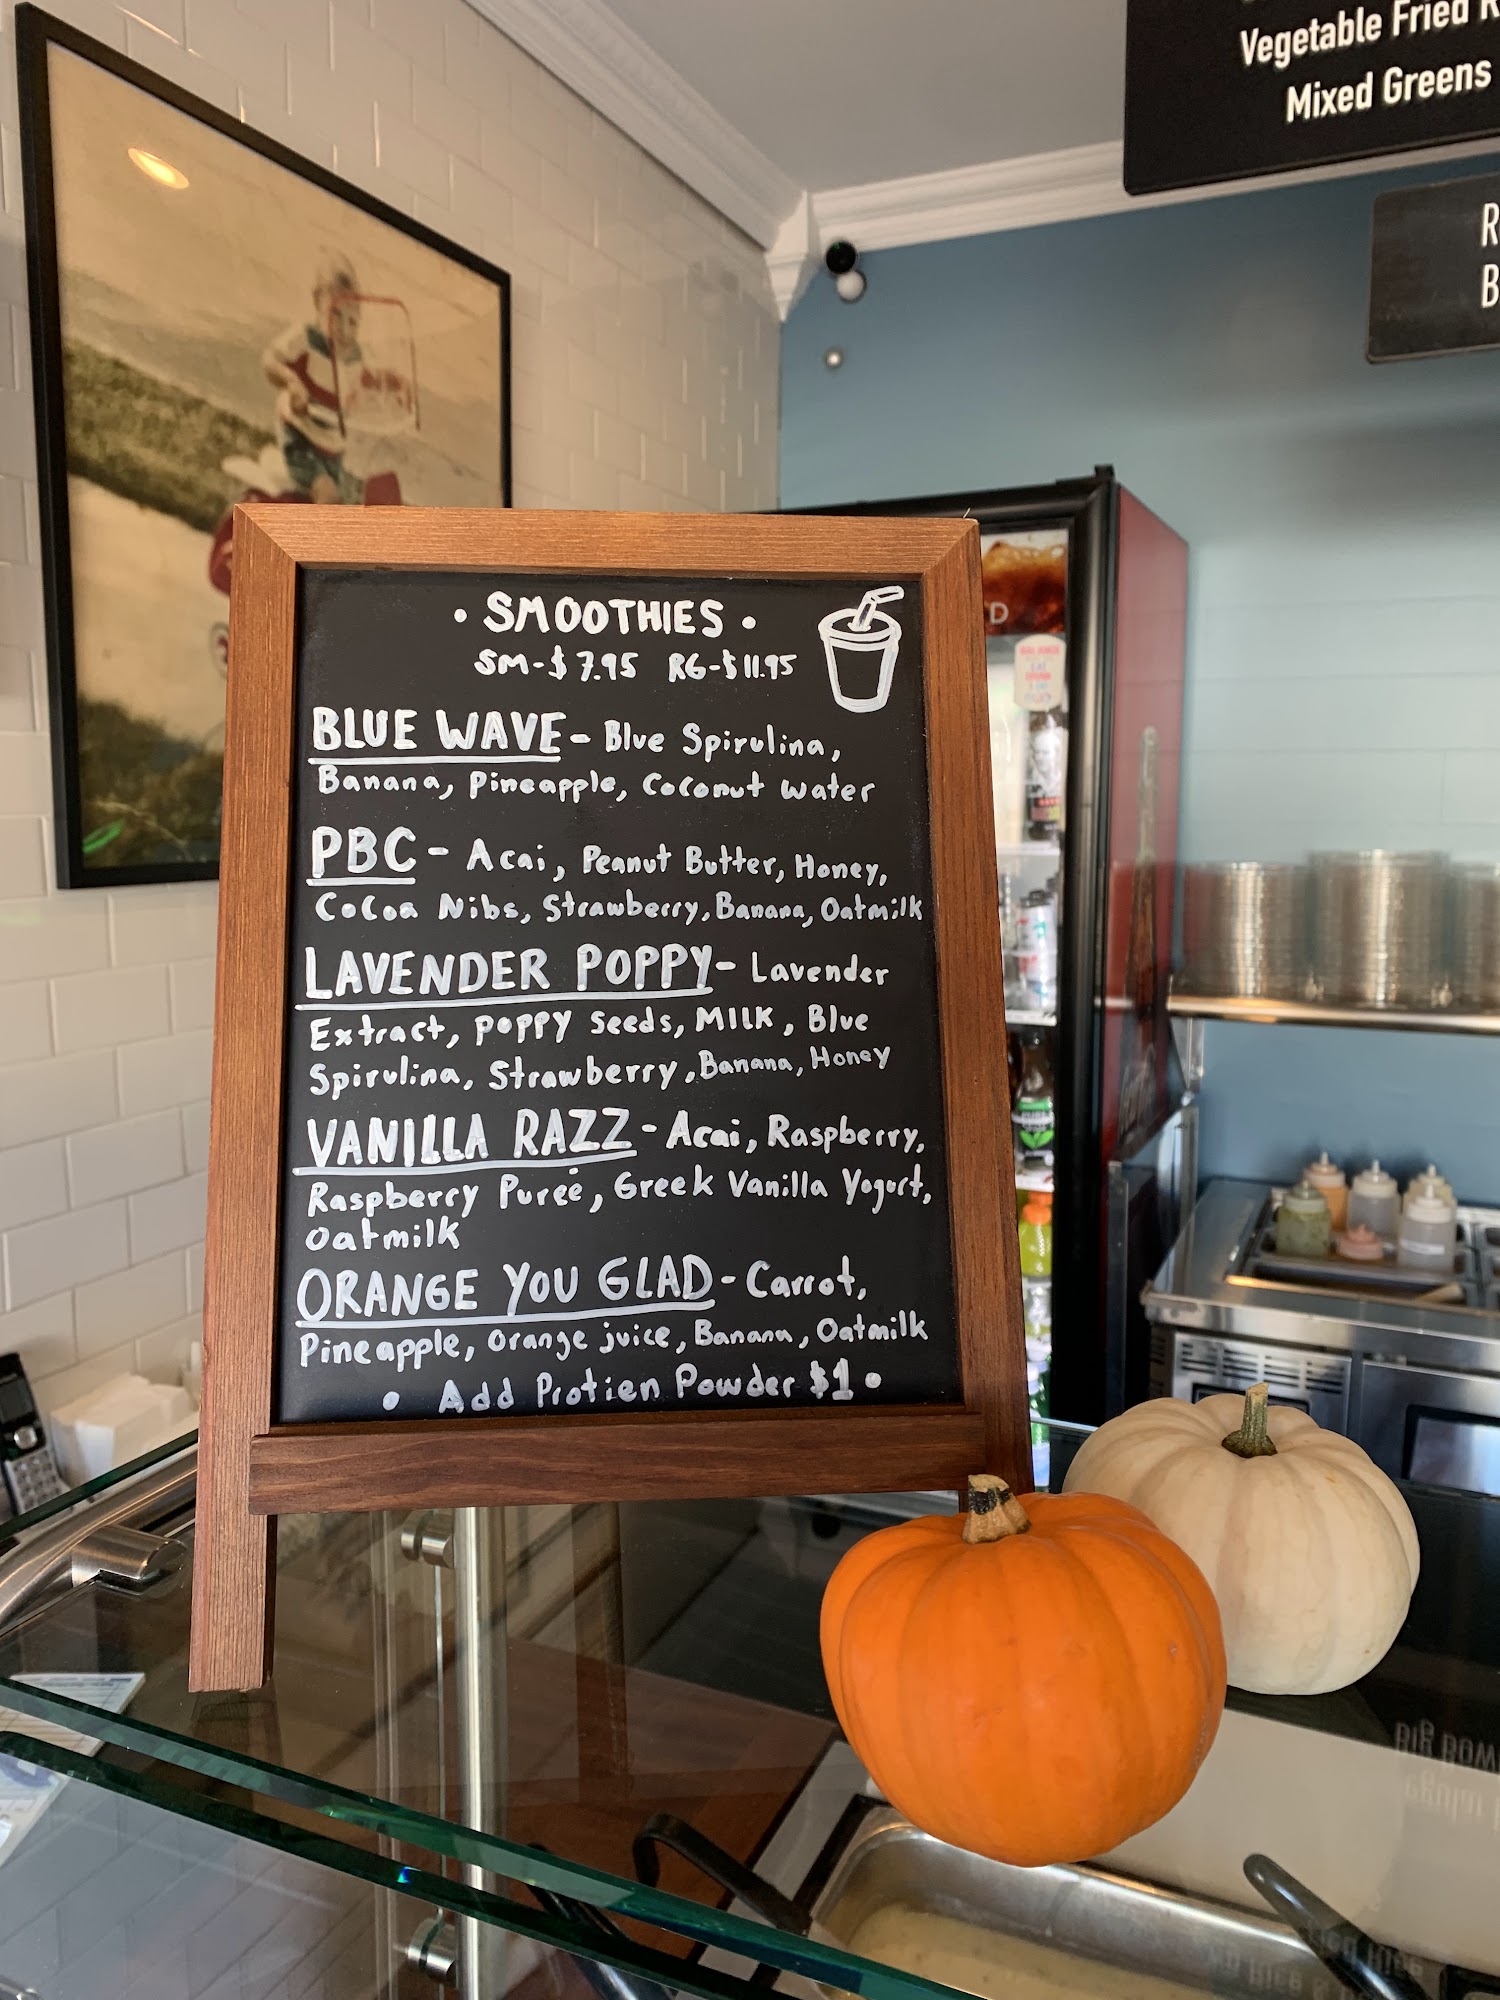 Vegetable Fried
Mixed Greens
• SMOOTHIES •
SM-$7.95 RG-$11.95
BLUE WAVE- Blue Spirulina,
Banana, Pineapple, Coconut water
PBC - Acai, Peanut Butter, Honey,
Cocoa Nibs, Strawberry, Banana, Oatmilk
LAVENDER POPPY- Lavender
Extract, poppy seeds, MILK, Blue
Spirulina, Strawberry, Banana, Honey
VANILLA RAZZ - Acai, Raspberry,
Raspberry Pureé, Greek Vanilla Yogurt,
Oatmilk
ORANGE YOU GLAD - Carrot,
Pineapple, orange juice, Banana, Oatmilk
• Add Protien Powder $1 •